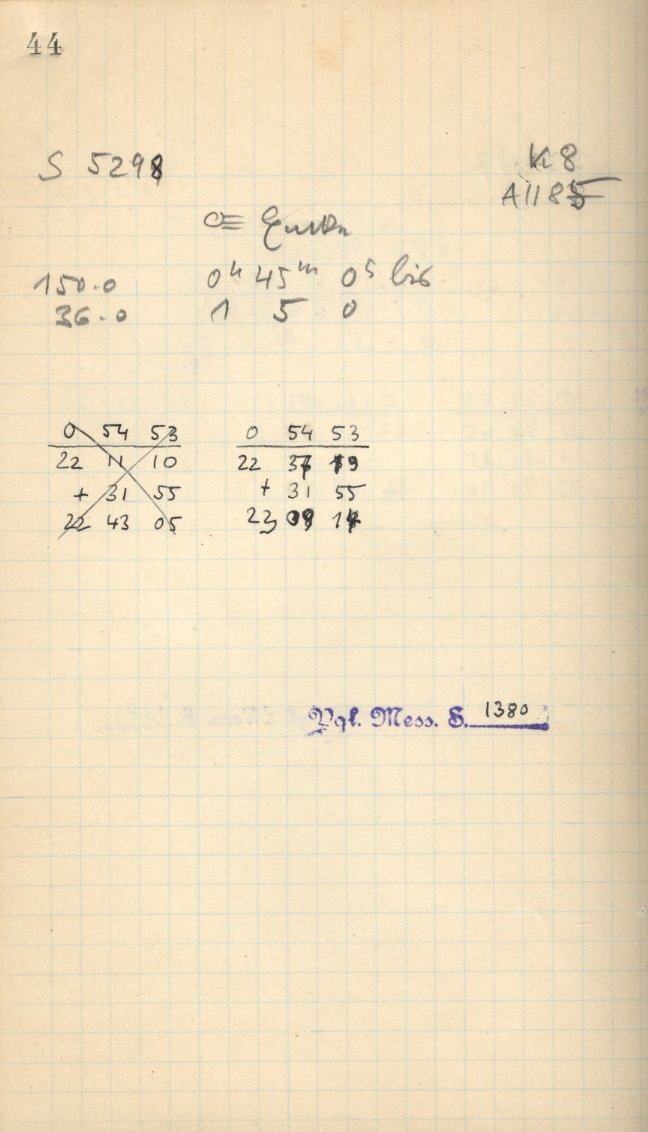 44
S 5298
K 8
A 1185
150.0 0h 45m 0s bis
36.0 1 5 0
0 54 53
22 11 10
+ 31 55
22 43 05
0 54 53
22 37 19
+ 31 55
23 09 14
Vgl. Mess. S. 1380